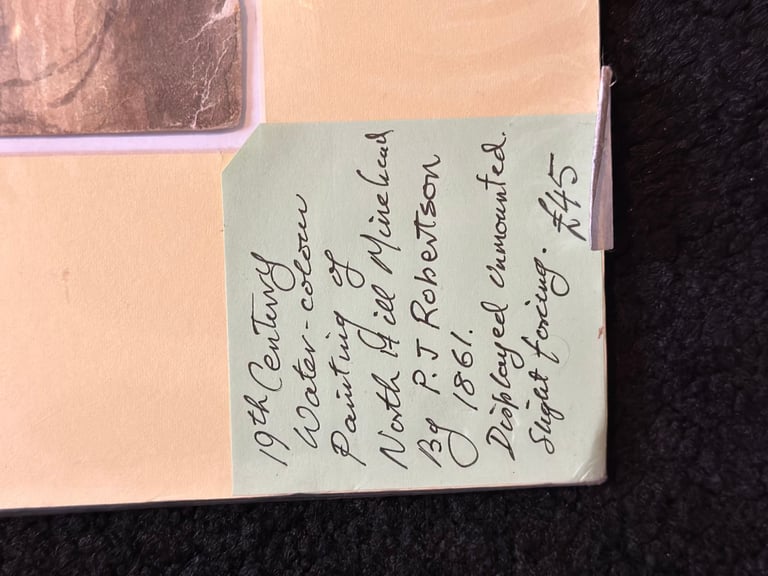 19th Century
Water-colour
Painting of
North Hill Minehead
By P.J Robertson
1861.
Displayed Unmounted.
Slight foxing. £45